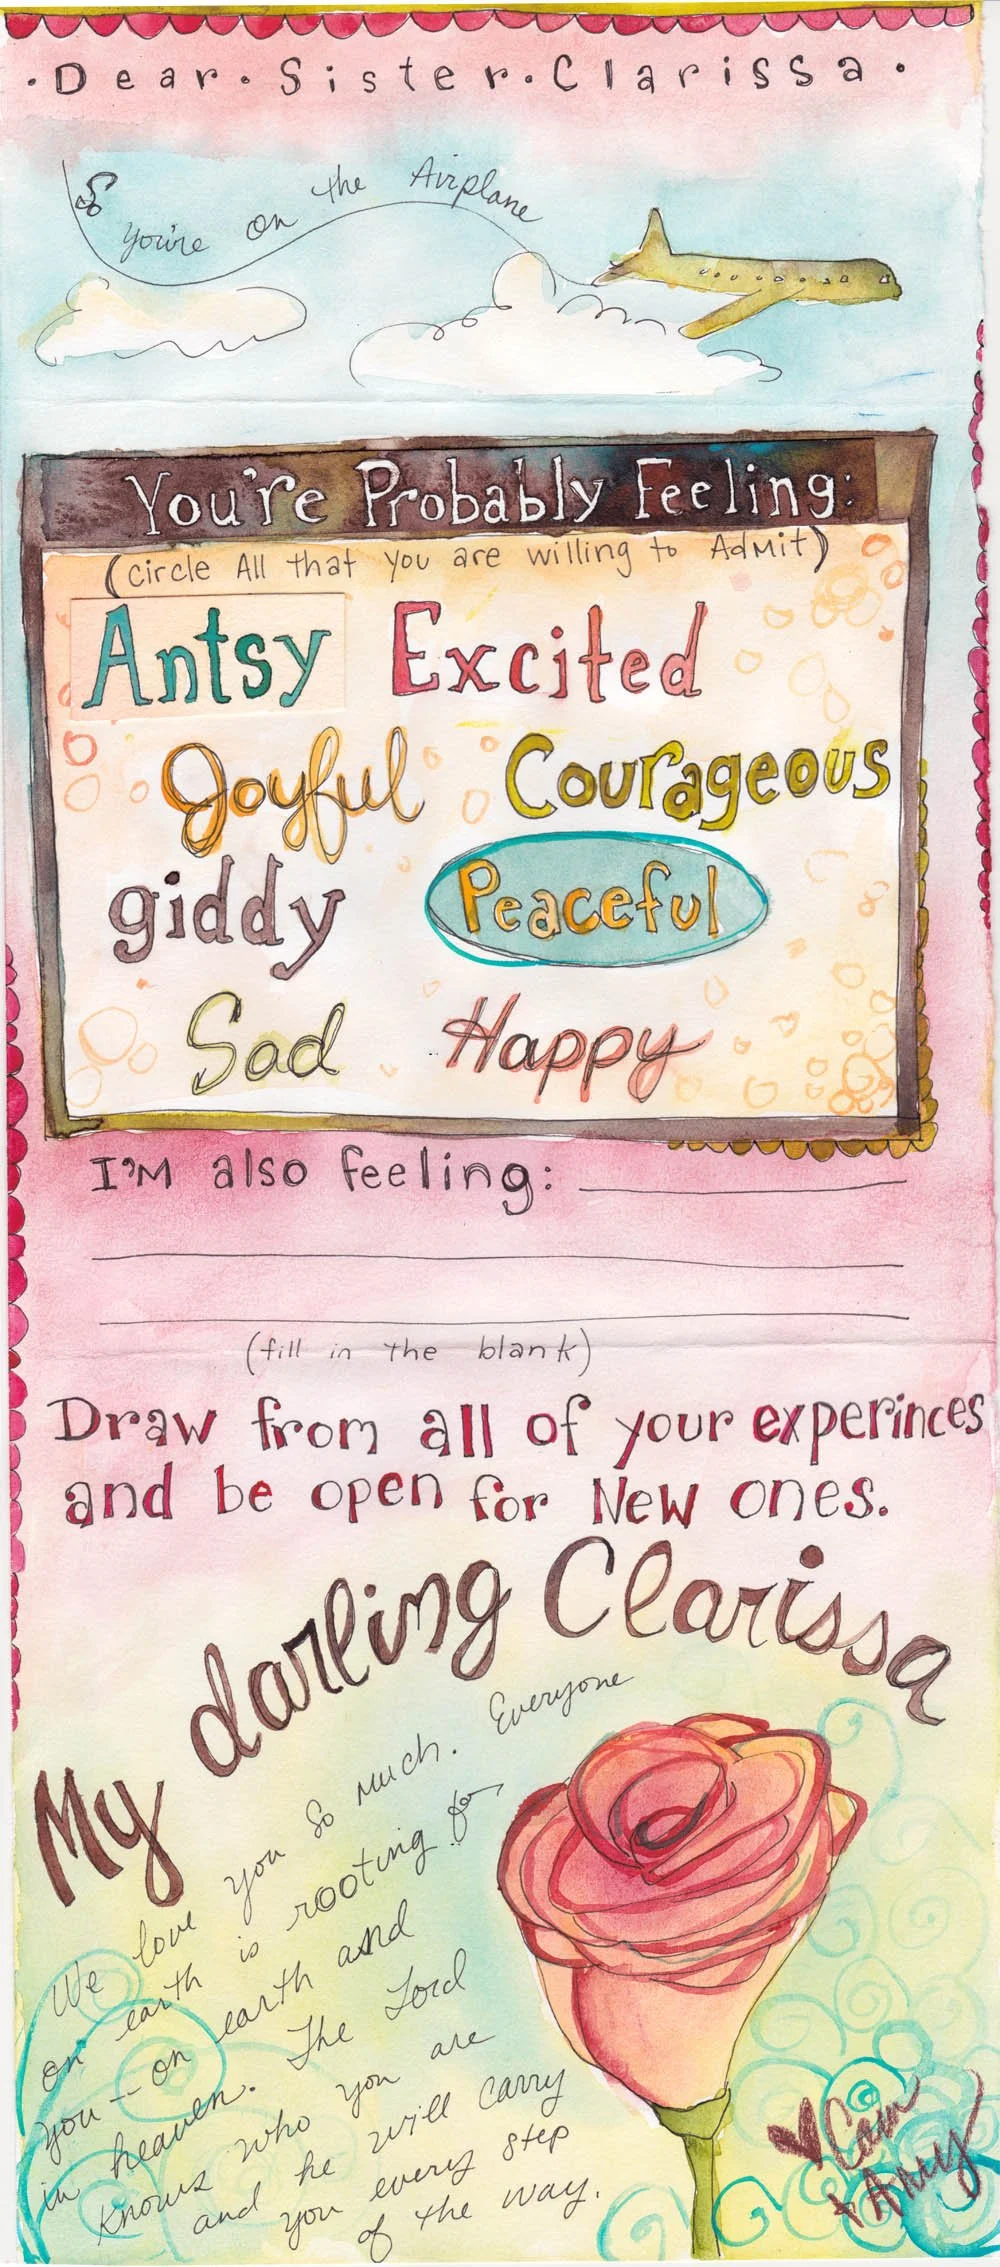 ·Dear·Sister·Clarissa·
So you're on the Airplane
You're Probably Feeling:
(circle All that you are willing to AdMit)
Antsy Excited
Joyful Courageous
giddy Peaceful
Sad Happy
I'M also feeling:
(fill in the blank)
Draw from all of your experinces
and be open for New ones.
My darling Clarissa
We love you so much. Everyone
on earth is rooting for
you -- on earth and
in heaven. The Lord
knows who you are
and he will carry
you every step
of the way.
♥ Cam
+ Amy